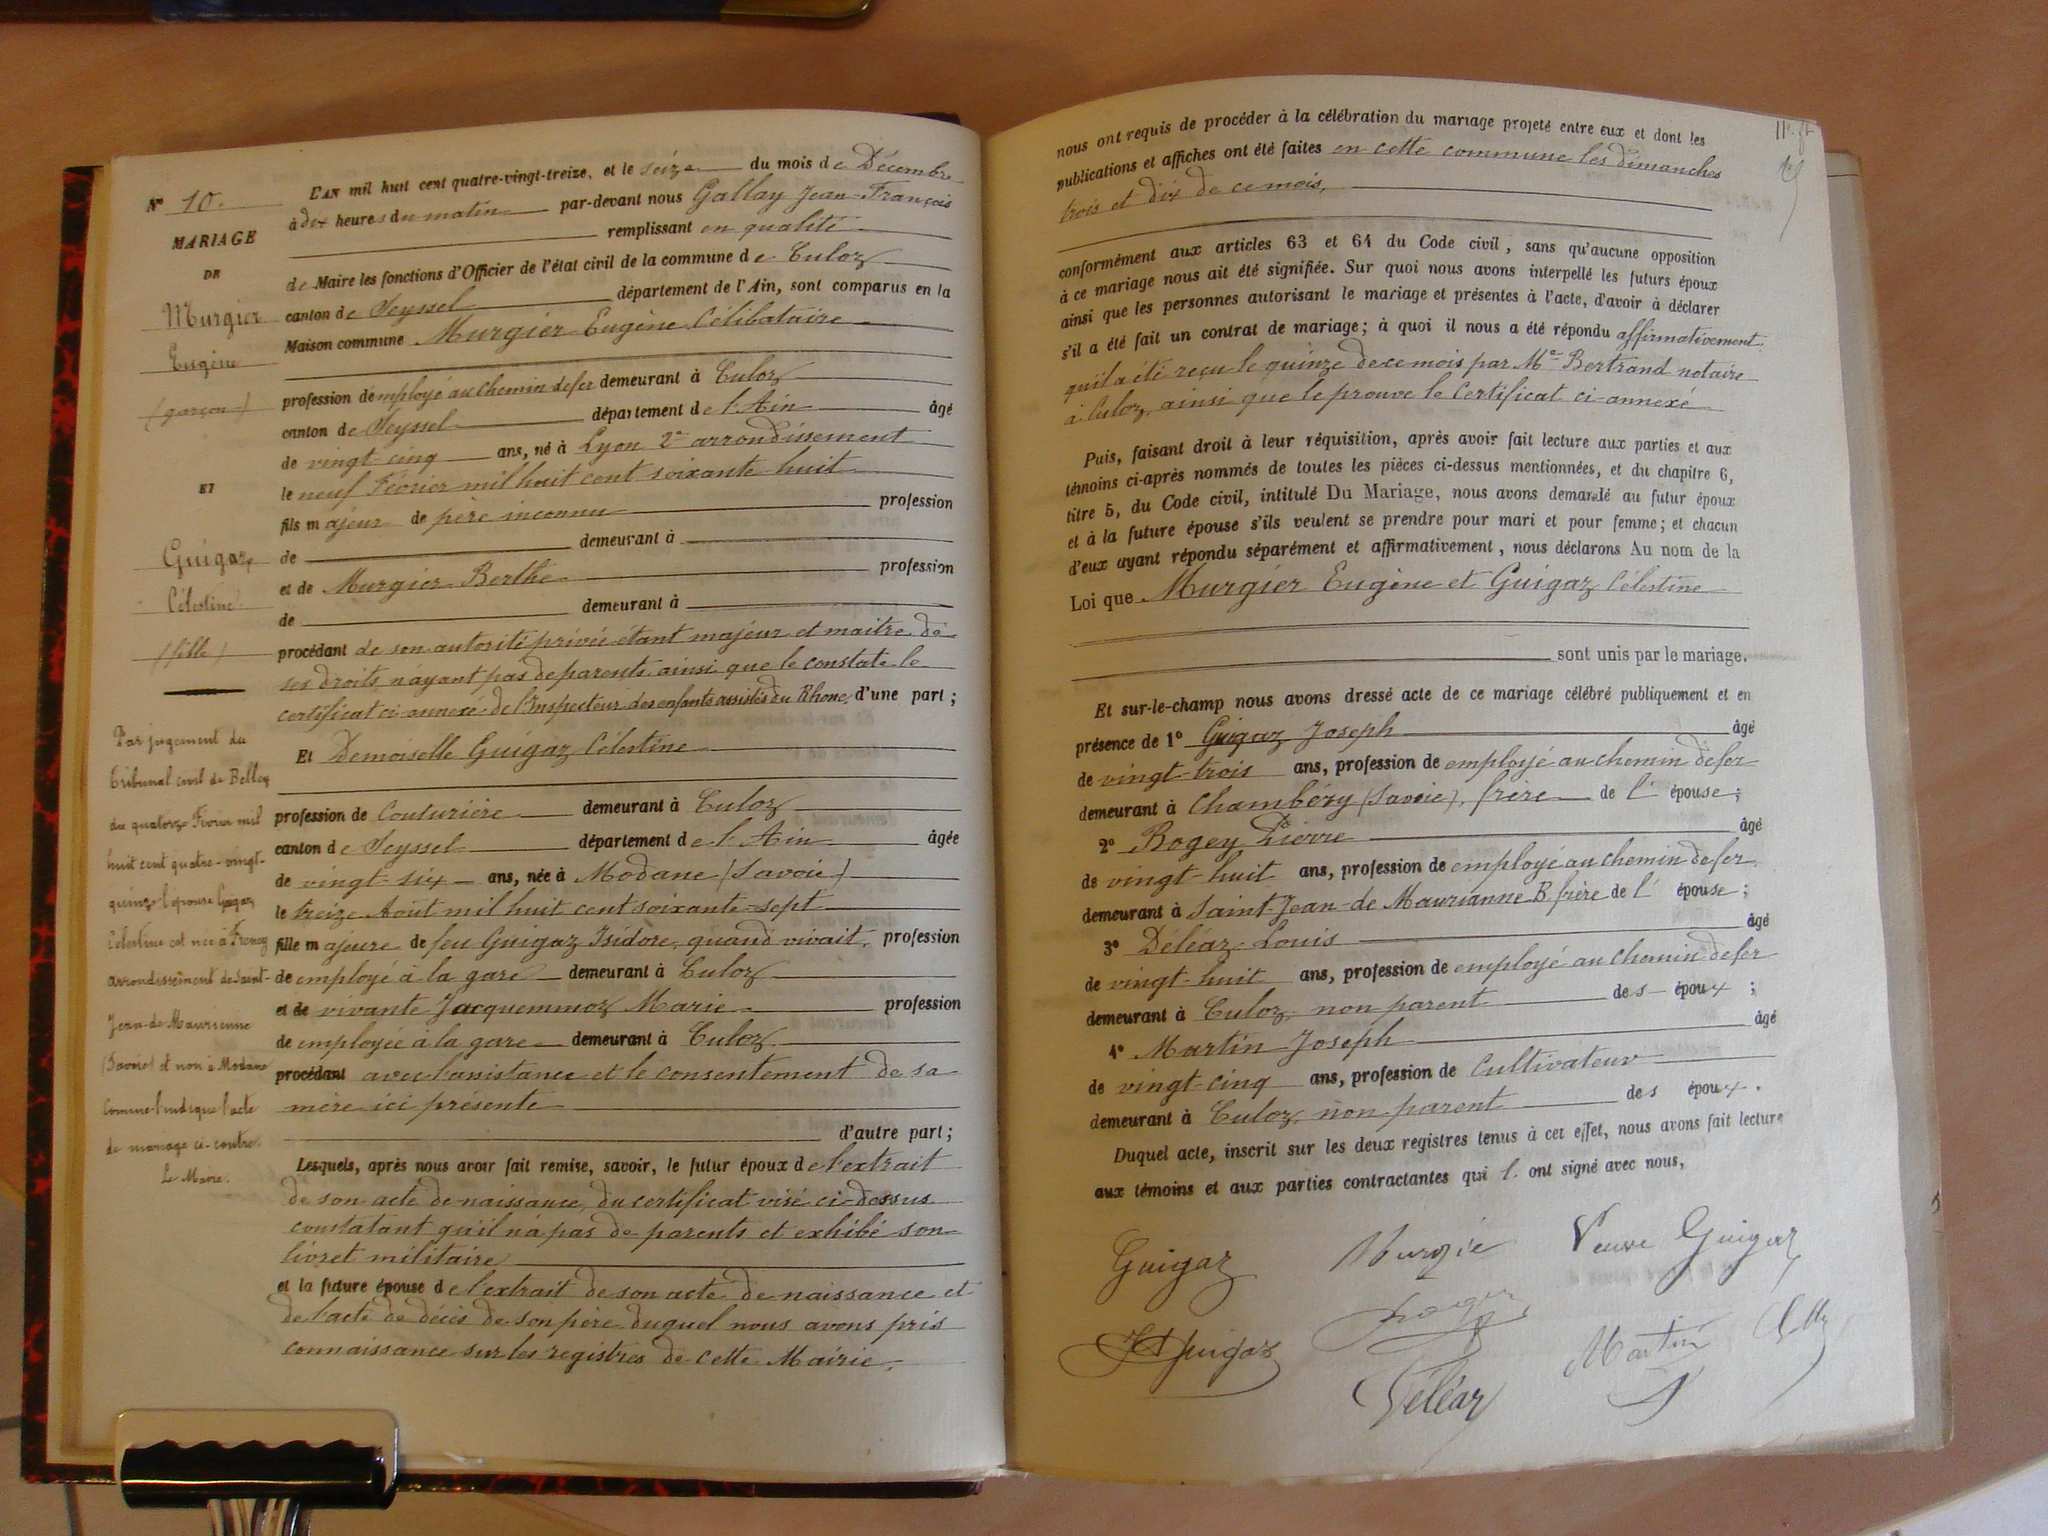 N° 10.
MARIAGE
DE
Murgier
Eugène
(garçon)
ET
Guigaz
Célestine
(fille)
Par jugement du
Tribunal civil de Belley
du quatorze Février mil
huit cent quatre-vingt-
quinze l'épouse Guigaz
Célestine est née à Freney
arrondissement de Saint-
Jean-de-Maurienne
(Savoie) et non à Modane
comme l'indique l'acte
de mariage ci-contre.
Le Maire.
L'AN mil huit cent quatre-vingt-treize, et le seize du mois de Décembre
à dix heures du matin par-devant nous Gallay Jean-François
remplissant en qualité
de Maire les fonctions d'Officier de l'état civil de la commune de Culoz
canton de Seyssel département de l'Ain, sont comparus en la
Maison commune Murgier Eugène Célibataire
profession d'employé au chemin de fer demeurant à Culoz
canton de Seyssel département de l'Ain âgé
de vingt cinq ans, né à Lyon 2e arrondissement
le neuf Février mil huit cent soixante huit
fils majeur de père inconnu profession
de demeurant à
et de Murgier Berthe profession
de demeurant à
procédant de son autorité privée étant majeur et maitre de
ses droits n'ayant pas de parents ainsi que le constate le
certificat ci-annexé de l'Inspecteur des enfants assistés du Rhone, d'une part ;
Et Demoiselle Guigaz Célestine
profession de Couturière demeurant à Culoz
canton de Seyssel département de l'Ain âgée
de vingt-six ans, née à Modane (Savoie)
le treize Août mil huit cent soixante-sept
fille majeure de feu Guigaz Isidore, quand vivait, profession
de employé à la gare demeurant à Culoz
et de vivante Jacquemmoz Marie profession
de employée à la gare demeurant à Culoz
procédant avec l'assistance et le consentement de sa
mère ici présente
d'autre part ;
Lesquels, après nous avoir fait remise, savoir, le futur époux de l'extrait
de son acte de naissance, du certificat visé ci-dessus
constatant qu'il n'a pas de parents et exhibé son
livret militaire
et la future épouse de l'extrait de son acte de naissance et
de l'acte de décès de son père duquel nous avons pris
connaissance sur les registres de cette Mairie.
nous ont requis de procéder à la célébration du mariage projeté entre eux et dont les
publications et affiches ont été faites en cette commune les dimanches
trois et dix de ce mois,
conformément aux articles 63 et 64 du Code civil, sans qu'aucune opposition
à ce mariage nous ait été signifiée. Sur quoi nous avons interpellé les futurs époux
ainsi que les personnes autorisant le mariage et présentes à l'acte, d'avoir à déclarer
s'il a été fait un contrat de mariage ; à quoi il nous a été répondu affirmativement
qu'il a été reçu le quinze de ce mois par Me Bertrand notaire
à Culoz, ainsi que le prouve le Certificat ci-annexé
Puis, faisant droit à leur réquisition, après avoir fait lecture aux parties et aux
témoins ci-après nommés de toutes les pièces ci-dessus mentionnées, et du chapitre 6,
titre 5, du Code civil, intitulé Du Mariage, nous avons demandé au futur époux
et à la future épouse s'ils veulent se prendre pour mari et pour femme ; et chacun
d'eux ayant répondu séparément et affirmativement, nous déclarons Au nom de la
Loi que Murgier Eugène et Guigaz Célestine
sont unis par le mariage.
Et sur-le-champ nous avons dressé acte de ce mariage célébré publiquement et en
présence de 1° Guigaz Joseph âgé
de vingt-trois ans, profession de employé au chemin de fer
demeurant à Chambéry (Savoie), frère de l' épouse ;
2° Bogey Pierre âgé
de vingt-huit ans, profession de employé au chemin de fer
demeurant à Saint-Jean-de Maurianne B. frère de l' épouse ;
3° Déléaz Louis âgé
de vingt-huit ans, profession de employé au chemin de fer
demeurant à Culoz non parent des époux ;
4° Martin Joseph âgé
de vingt-cinq ans, profession de Cultivateur
demeurant à Culoz, non parent des époux.
Duquel acte, inscrit sur les deux registres tenus à cet effet, nous avons fait lecture
aux témoins et aux parties contractantes qui l'ont signé avec nous,
Guigaz Murgie Veuve Guigaz
Guigaz Martin
Déléaz